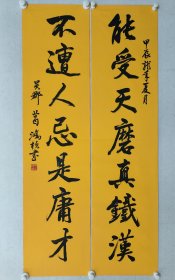 能受天磨真鐵漢
甲辰龍年夏月
不遭人忌是庸才
吴郡
書